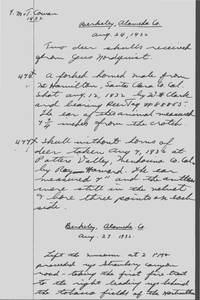 I. McT. Cowan
1932
Berkeley, Alameda Co.
Aug. 24, 1932
Two deer skulls received
from Jens Nordquist.
A forked horned male from
Mt Hamilton, Santa Clara Co. Cal.
Shot Aug. 12, 1932 by Clark
and bearing Deer Tag
The ear of the animal measured
7 3/4 inches from the crotch
Skull without horns of
deer taken Aug 7, 1932 at
Potter Valley, Mendocino Co. Cal.
by Ray Howard. The ear
measured 7" and the antlers
were still in the velvet
& bore three points on each
side.
Berkeley, Alameda Co
Aug. 27 1932
Left the museum at 2 P.M.
proceeded up Strawberry canyon
road - taking the first fire trail
to the right leading up behind
the tobacco fields of the